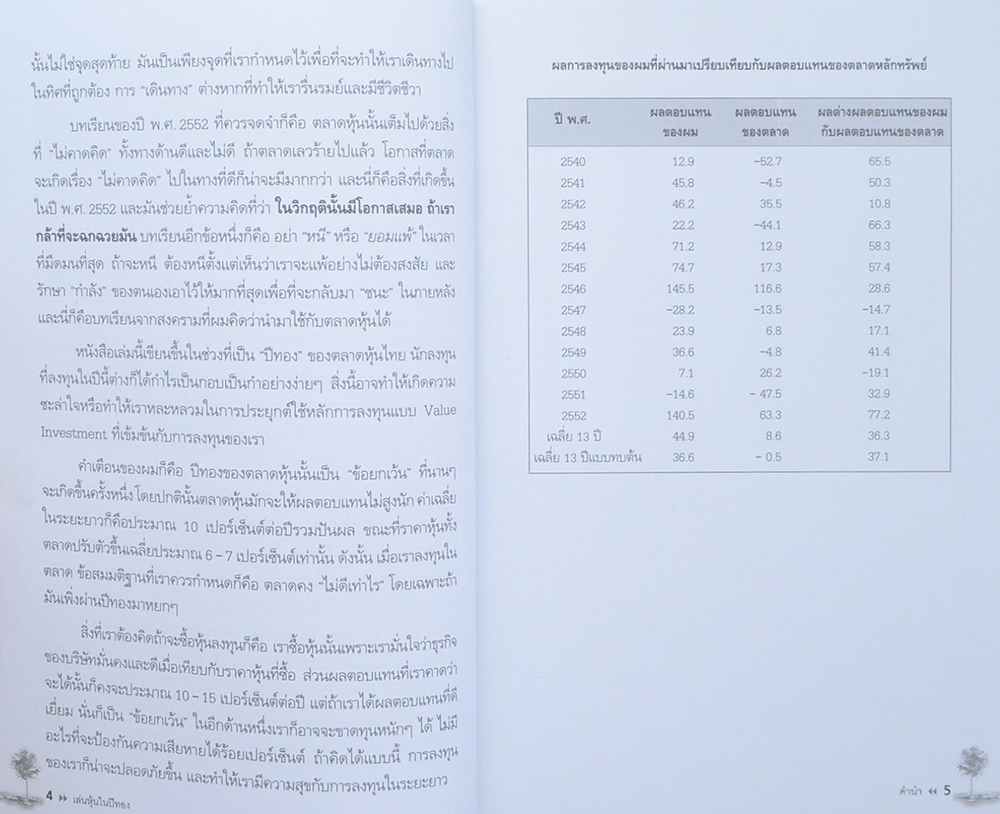 นั้นไม่ใช่จุดสุดท้าย มันเป็นเพียงจุดที่เรากำหนดไว้เพื่อที่จะทำให้เราเดินทางไป
ในทิศที่ถูกต้อง การ “เดินทาง” ต่างหากที่ทำให้เรารื่นรมย์และมีชีวิตชีวา
บทเรียนของปี พ.ศ. 2552 ที่ควรจดจำก็คือ ตลาดหุ้นนั้นเต็มไปด้วยสิ่ง
ที่ “ไม่คาดคิด” ทั้งทางด้านดีและไม่ดี ถ้าตลาดเลวร้ายไปแล้ว โอกาสที่ตลาด
จะเกิดเรื่อง “ไม่คาดคิด” ไปในทางที่ดีก็น่าจะมีมากกว่า และนี่ก็คือสิ่งที่เกิดขึ้น
ในปี พ.ศ. 2552 และมันช่วยย้ำความคิดที่ว่า ในวิกฤตินั้นมีโอกาสเสมอ ถ้าเรา
กล้าที่จะฉกฉวยมัน บทเรียนอีกข้อหนึ่งก็คือ อย่า “หนี” หรือ “ยอมแพ้” ในเวลา
ที่มืดมนที่สุด ถ้าจะหนี ต้องหนีตั้งแต่เห็นว่าเราจะแพ้อย่างไม่ต้องสงสัย และ
รักษา “กำลัง” ของตนเองเอาไว้ให้มากที่สุดเพื่อที่จะกลับมา “ชนะ” ในภายหลัง
และนี่ก็คือบทเรียนจากสงครามที่ผมคิดว่านำมาใช้กับตลาดหุ้นได้
หนังสือเล่มนี้เขียนขึ้นในช่วงที่เป็น “ปีทอง” ของตลาดหุ้นไทย นักลงทุน
ที่ลงทุนในปีนี้ต่างก็ได้กำไรเป็นกอบเป็นกำอย่างง่ายๆ สิ่งนี้อาจทำให้เกิดความ
ชะล่าใจหรือทำให้เราหละหลวมในการประยุกต์ใช้หลักการลงทุนแบบ Value
Investment ที่เข้มข้นกับการลงทุนของเรา
คำเตือนของผมก็คือ ปีทองของตลาดหุ้นนั้นเป็น “ข้อยกเว้น” ที่นานๆ
จะเกิดขึ้นครั้งหนึ่ง โดยปกตินั้นตลาดหุ้นมักจะให้ผลตอบแทนไม่สูงนัก ค่าเฉลี่ย
ในระยะยาวก็คือประมาณ 10 เปอร์เซ็นต์ต่อปีรวมปันผล ขณะที่ราคาหุ้นทั้ง
ตลาดปรับตัวขึ้นเฉลี่ยประมาณ 6 – 7 เปอร์เซ็นต์เท่านั้น ดังนั้น เมื่อเราลงทุนใน
ตลาด ข้อสมมติฐานที่เราควรกำหนดก็คือ ตลาดคง “ไม่ดีเท่าไร” โดยเฉพาะถ้า
มันเพิ่งผ่านปีทองมาหยกๆ
สิ่งที่เราต้องคิดถ้าจะซื้อหุ้นลงทุนก็คือ เราซื้อหุ้นนั้นเพราะเรามั่นใจว่าธุรกิจ
ของบริษัทมั่นคงและดีเมื่อเทียบกับราคาหุ้นที่ซื้อ ส่วนผลตอบแทนที่เราคาดว่า
จะได้นั้นก็คงจะประมาณ 10 – 15 เปอร์เซ็นต์ต่อปี แต่ถ้าเราได้ผลตอบแทนที่ดี
เยี่ยม นั่นก็เป็น “ข้อยกเว้น” ในอีกด้านหนึ่งเราก็อาจจะขาดทุนหนักๆ ได้ ไม่มี
อะไรที่จะป้องกันความเสียหายได้ร้อยเปอร์เซ็นต์ ถ้าคิดได้แบบนี้ การลงทุน
ของเราก็น่าจะปลอดภัยขึ้น และทำให้เรามีความสุขกับการลงทุนในระยะยาว
4 ▸▸ เล่นหุ้นในปีทอง
ผลการลงทุนของผมที่ผ่านมาเปรียบเทียบกับผลตอบแทนของตลาดหลักทรัพย์
ปี พ.ศ. ผลตอบแทนของผม ผลตอบแทนของตลาด ผลต่างผลตอบแทนของผมกับผลตอบแทนของตลาด
2540 12.9 –52.7 65.5
2541 45.8 –4.5 50.3
2542 46.2 35.5 10.8
2543 22.2 –44.1 66.3
2544 71.2 12.9 58.3
2545 74.7 17.3 57.4
2546 145.5 116.6 28.6
2547 –28.2 –13.5 –14.7
2548 23.9 6.8 17.1
2549 36.6 –4.8 41.4
2550 7.1 26.2 –19.1
2551 –14.6 – 47.5 32.9
2552 140.5 63.3 77.2
เฉลี่ย 13 ปี 44.9 8.6 36.3
เฉลี่ย 13 ปีแบบทบต้น 36.6 – 0.5 37.1
คำนำ ◂◂ 5